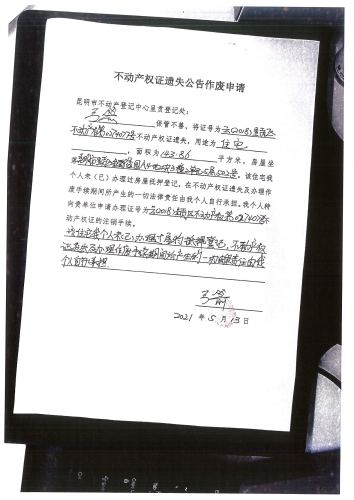 不动产权证遗失公告作废申请
昆明市不动产登记中心呈贡登记处：
保管不善，将证号为云(2018)呈贡区
不动产权第0274079号不动产权证遗失，用途为住宅
，面积为143.86平方米，房屋坐
5层502号。该住宅我
个人未（已）办理过房屋抵押登记，在不动产权证遗失及办理作
废手续期间所产生的一切法律责任由我个人自行承担。我个人特
向贵单位申请办理证号为云(2018)呈贡区不动产权第0274079不
动产权证的注销手续。
该住宅我个人未(已)办理过房屋抵押登记，不动产权
证遗失及办理作废手续期间所产生的一切法律责任由我
个人自行承担
2021 年 5 月 13 日